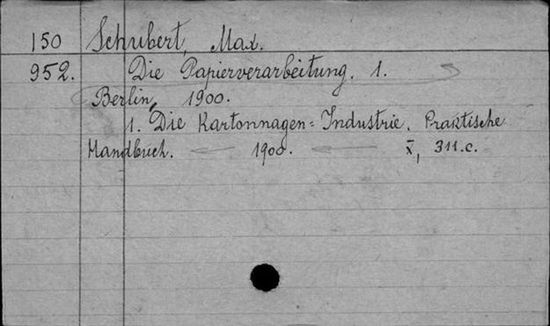 150 Schubert, Max.
952. Die Papierverarbeitung. 1.
Berlin, 1900.
1. Die Kartonnagen=Industrie. Praktische
Handbuch. — 1900. — X, 311.c.